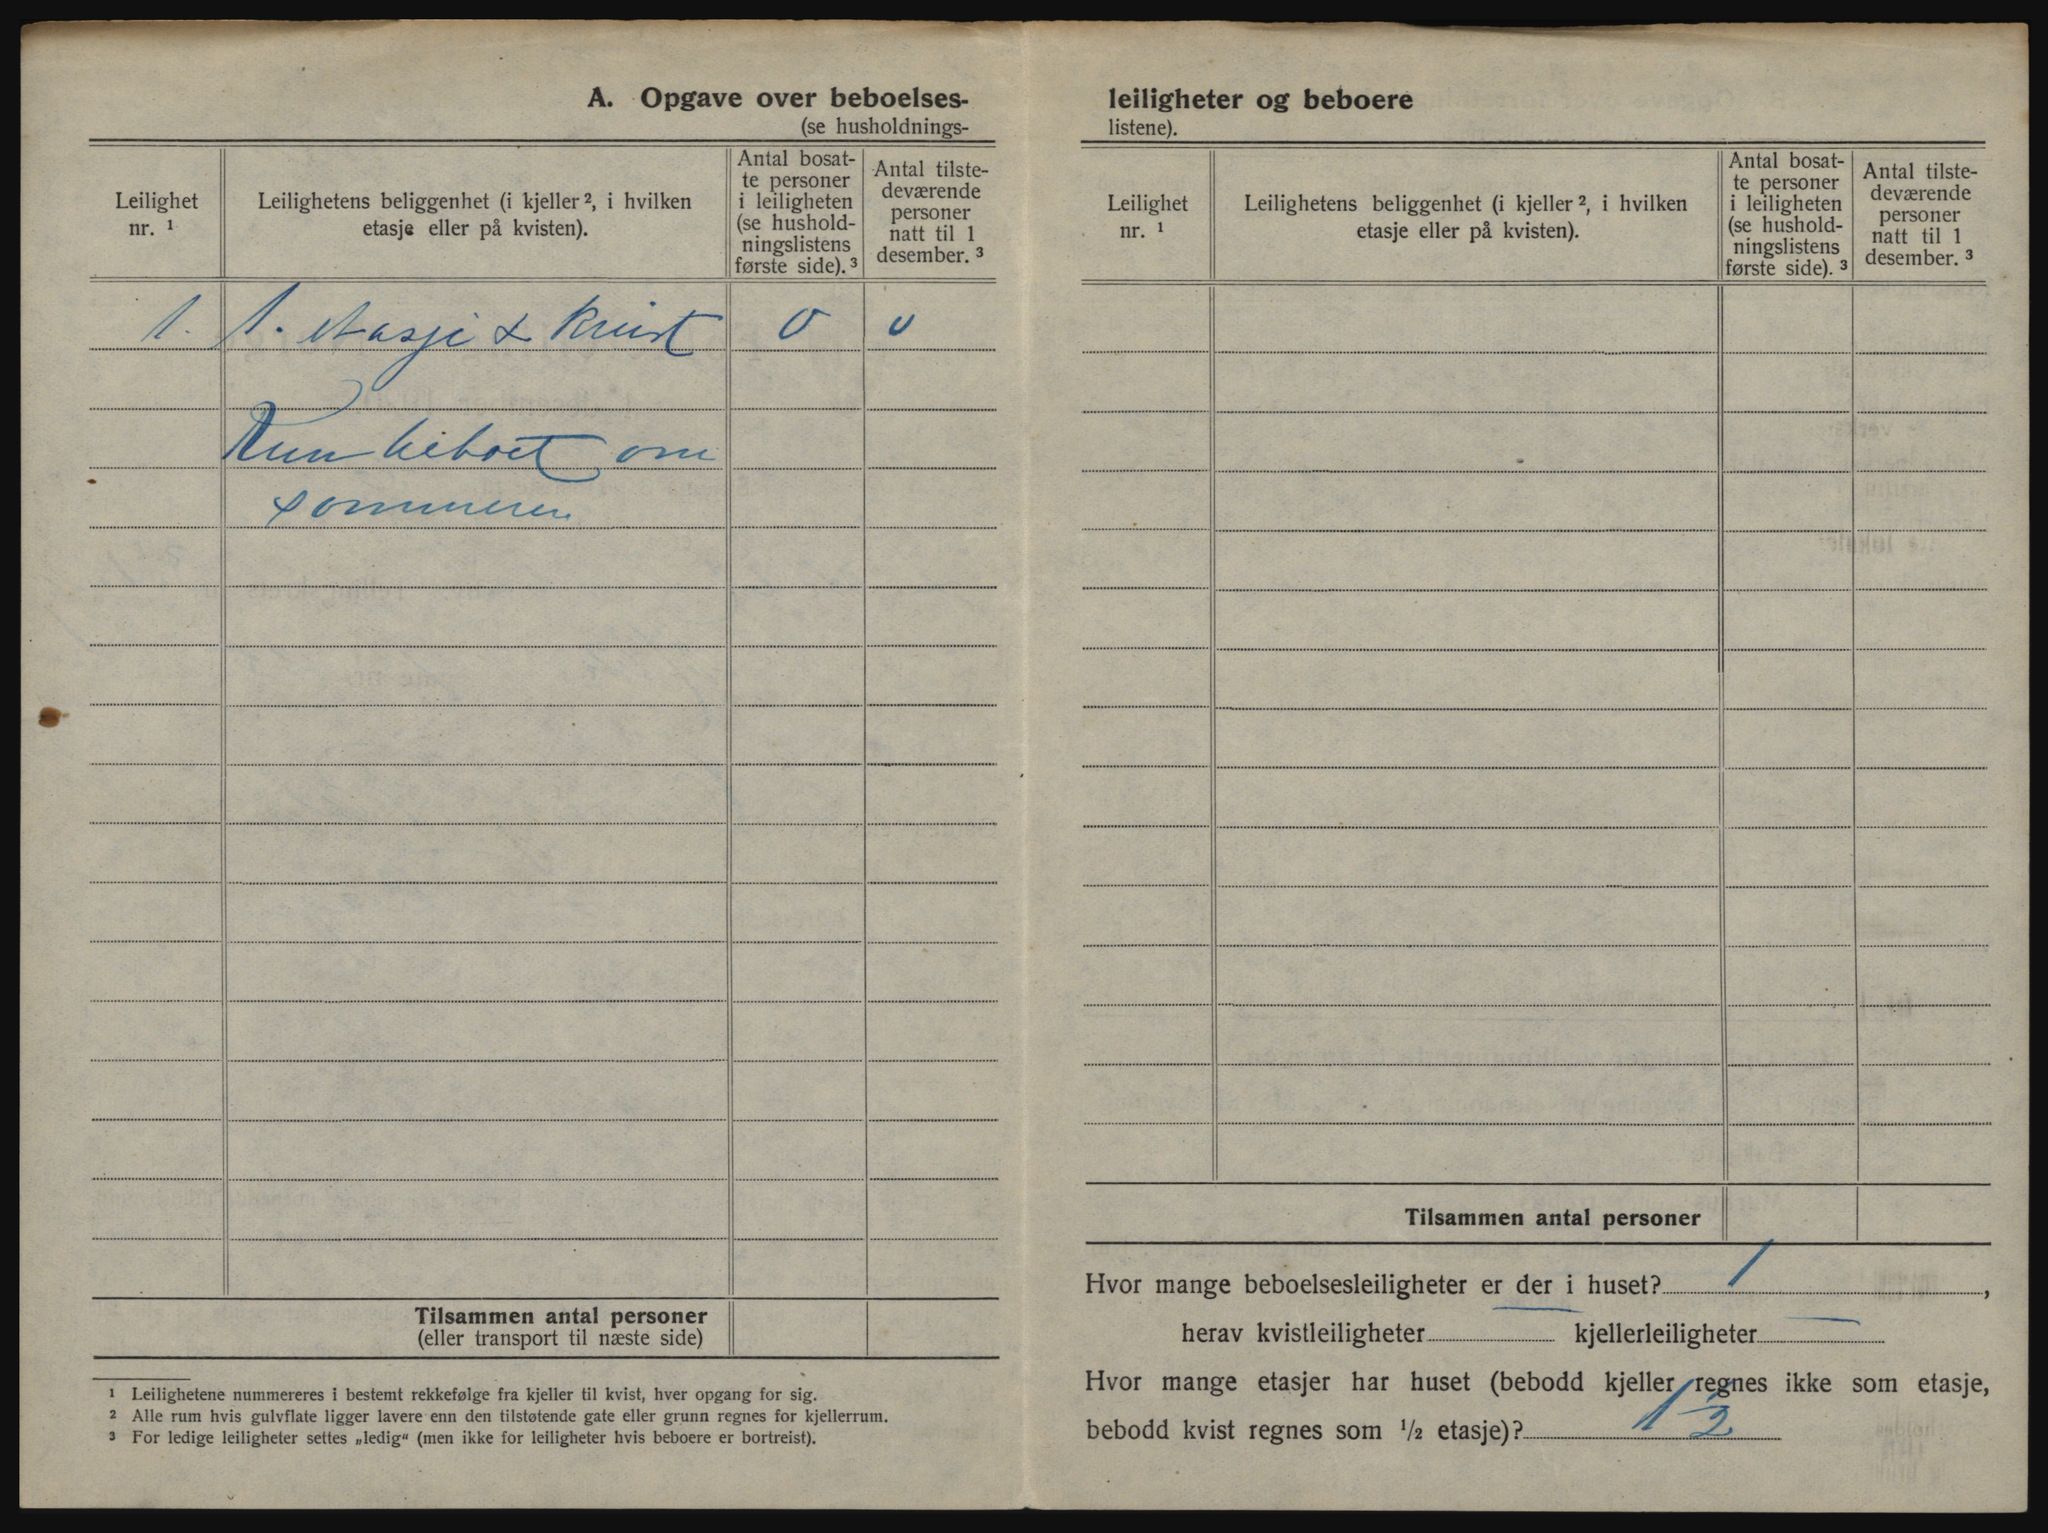 A. Opgave over beboelses-
(se husholdnings-
Leilighet
nr. ¹
Leilighetens beliggenhet (i kjeller ², i hvilken
etasje eller på kvisten).
Antal bosat-
te personer
i leiligheten
(se hushold-
ningslistens
første side). ³
Antal tilste-
deværende
personer
natt til 1
desember. ³
1. 1. etasje & kvist 0 0
Kun beboet om
sommeren
Tilsammen antal personer
(eller transport til næste side)
¹ Leilighetene nummereres i bestemt rekkefølge fra kjeller til kvist, hver opgang for sig.
² Alle rum hvis gulvflate ligger lavere enn den tilstøtende gate eller grunn regnes for kjellerrum.
³ For ledige leiligheter settes „ledig“ (men ikke for leiligheter hvis beboere er bortreist).
leiligheter og beboere
listene).
Leilighet
nr. ¹
Leilighetens beliggenhet (i kjeller ², i hvilken
etasje eller på kvisten).
Antal bosat-
te personer
i leiligheten
(se hushold-
ningslistens
første side). ³
Antal tilste-
deværende
personer
natt til 1
desember. ³
Tilsammen antal personer
Hvor mange beboelsesleiligheter er der i huset? 1,
herav kvistleiligheter — kjellerleiligheter —
Hvor mange etasjer har huset (bebodd kjeller regnes ikke som etasje,
bebodd kvist regnes som ¹/₂ etasje)? 1 ½